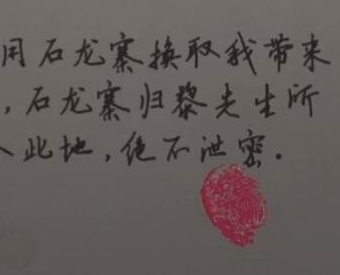 用石龙寨换取我带来
，石龙寨归黎先生所
入此地，绝不泄密．